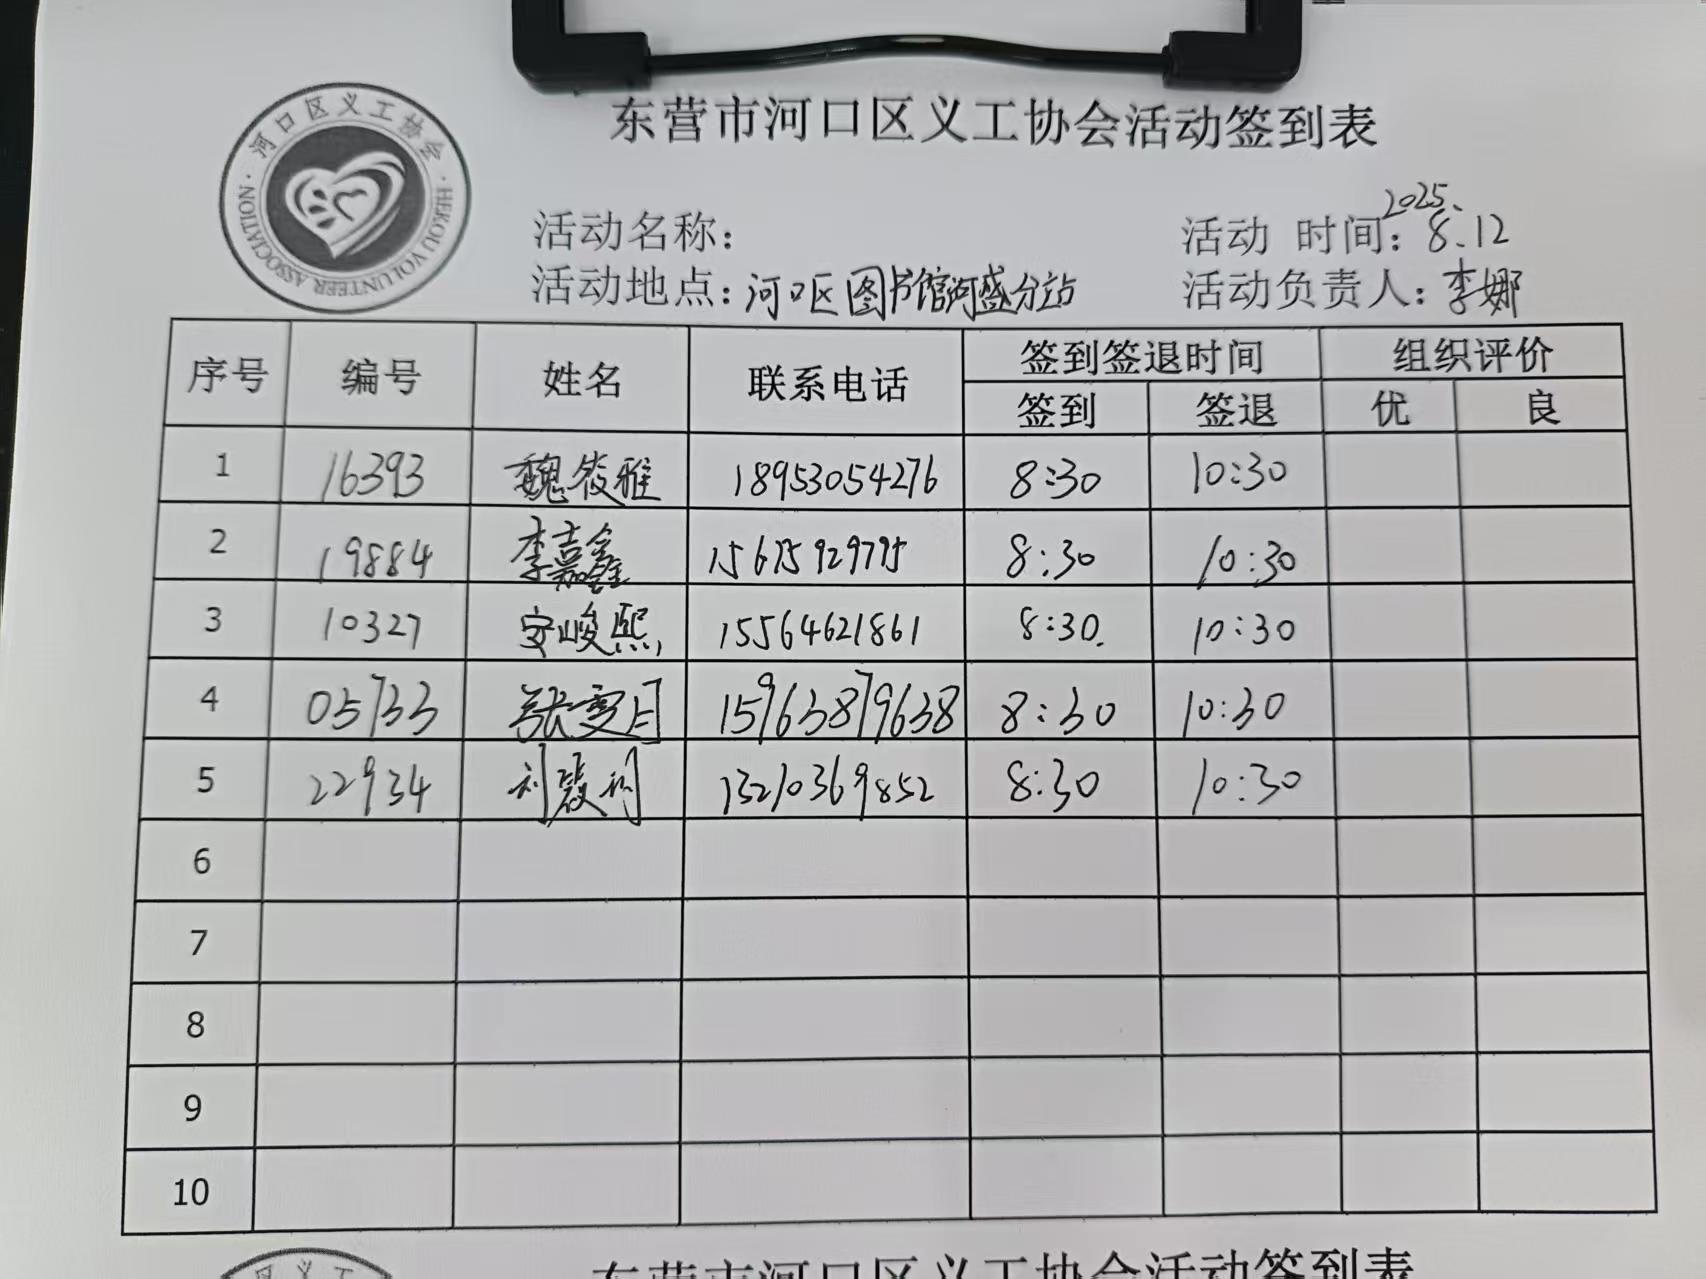 东营市河口区义工协会活动签到表
·河口区义工协会·
HEKOU VOLUNTEER ASSOCIATION
活动名称：
活动 时间：2025.8.12
活动地点：河口区图书馆河盛分站
活动负责人：李娜
序号 编号 姓名 联系电话 签到签退时间 组织评价
签到 签退 优 良
1 16393 魏筱雅 18953054276 8:30 10:30
2 19884 李嘉鑫 8:30 10:30
3 10327 安峻熙 15564621861 8:30. 10:30
4 05733 张雯月 15963879638 8:30 10:30
5 22934 刘 13210369852 8:30 10:30
6
7
8
9
10
东营市河口区义工协会活动签到表